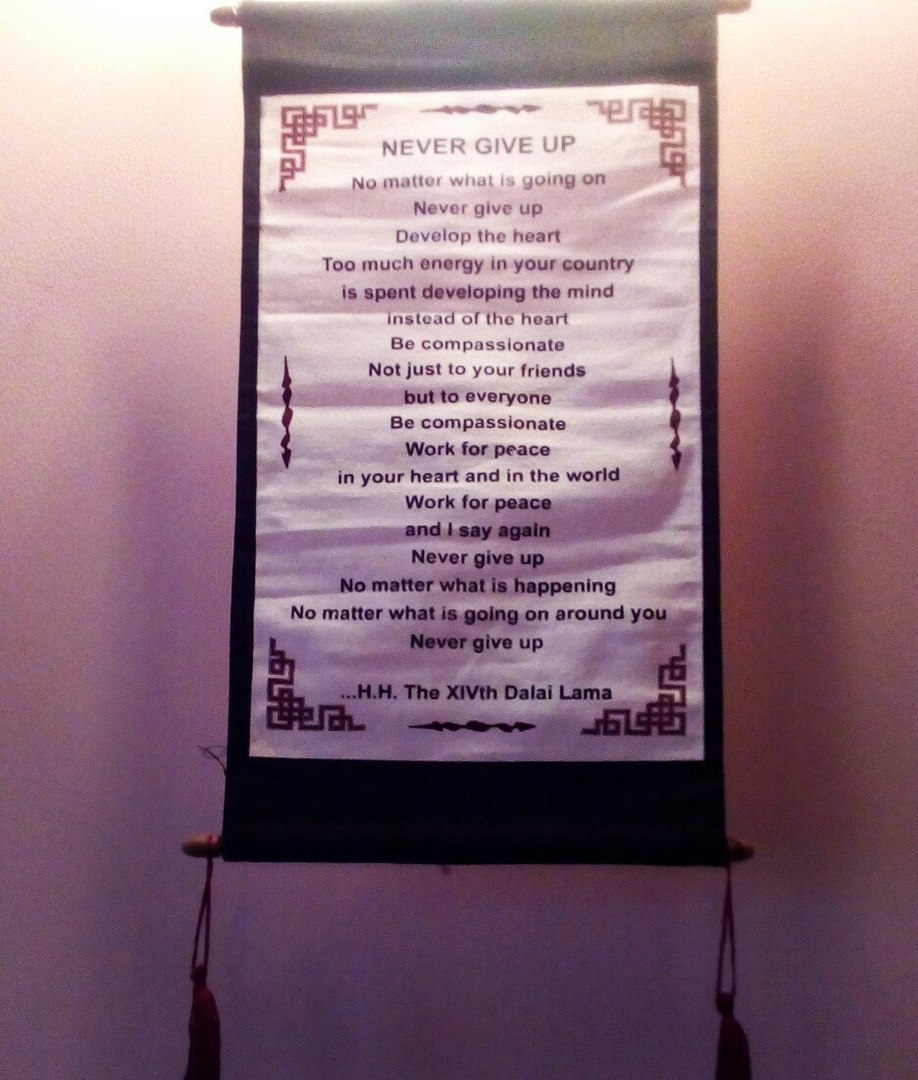 NEVER GIVE UP
No matter what is going on
Never give up
Develop the heart
Too much energy in your country
is spent developing the mind
instead of the heart
Be compassionate
Not just to your friends
but to everyone
Be compassionate
Work for peace
in your heart and in the world
Work for peace
and I say again
Never give up
No matter what is happening
No matter what is going on around you
Never give up
...H.H. The XIVth Dalai Lama